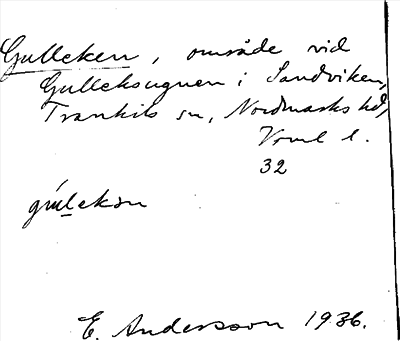 Gulleken, område vid
Gulleksugnen i Sandviken,
Trankils sn, Nordmarks hd,
Vrml l.
32
gúlekən
E. Andersson 1936.